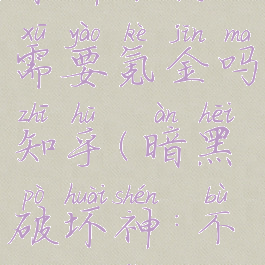 xū yào kè jīn ma
需要氪金吗
zhī hū àn hēi
知乎(暗黑
pò huài shén bù
破坏神:不